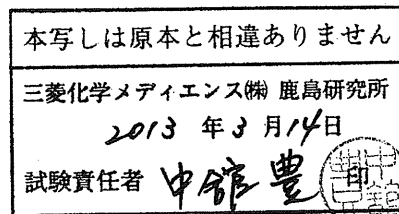 本写しは原本と相違ありません
三菱化学メディエンス㈱ 鹿島研究所
2013 年 3 月 14 日
試験責任者 中舘 豊 印